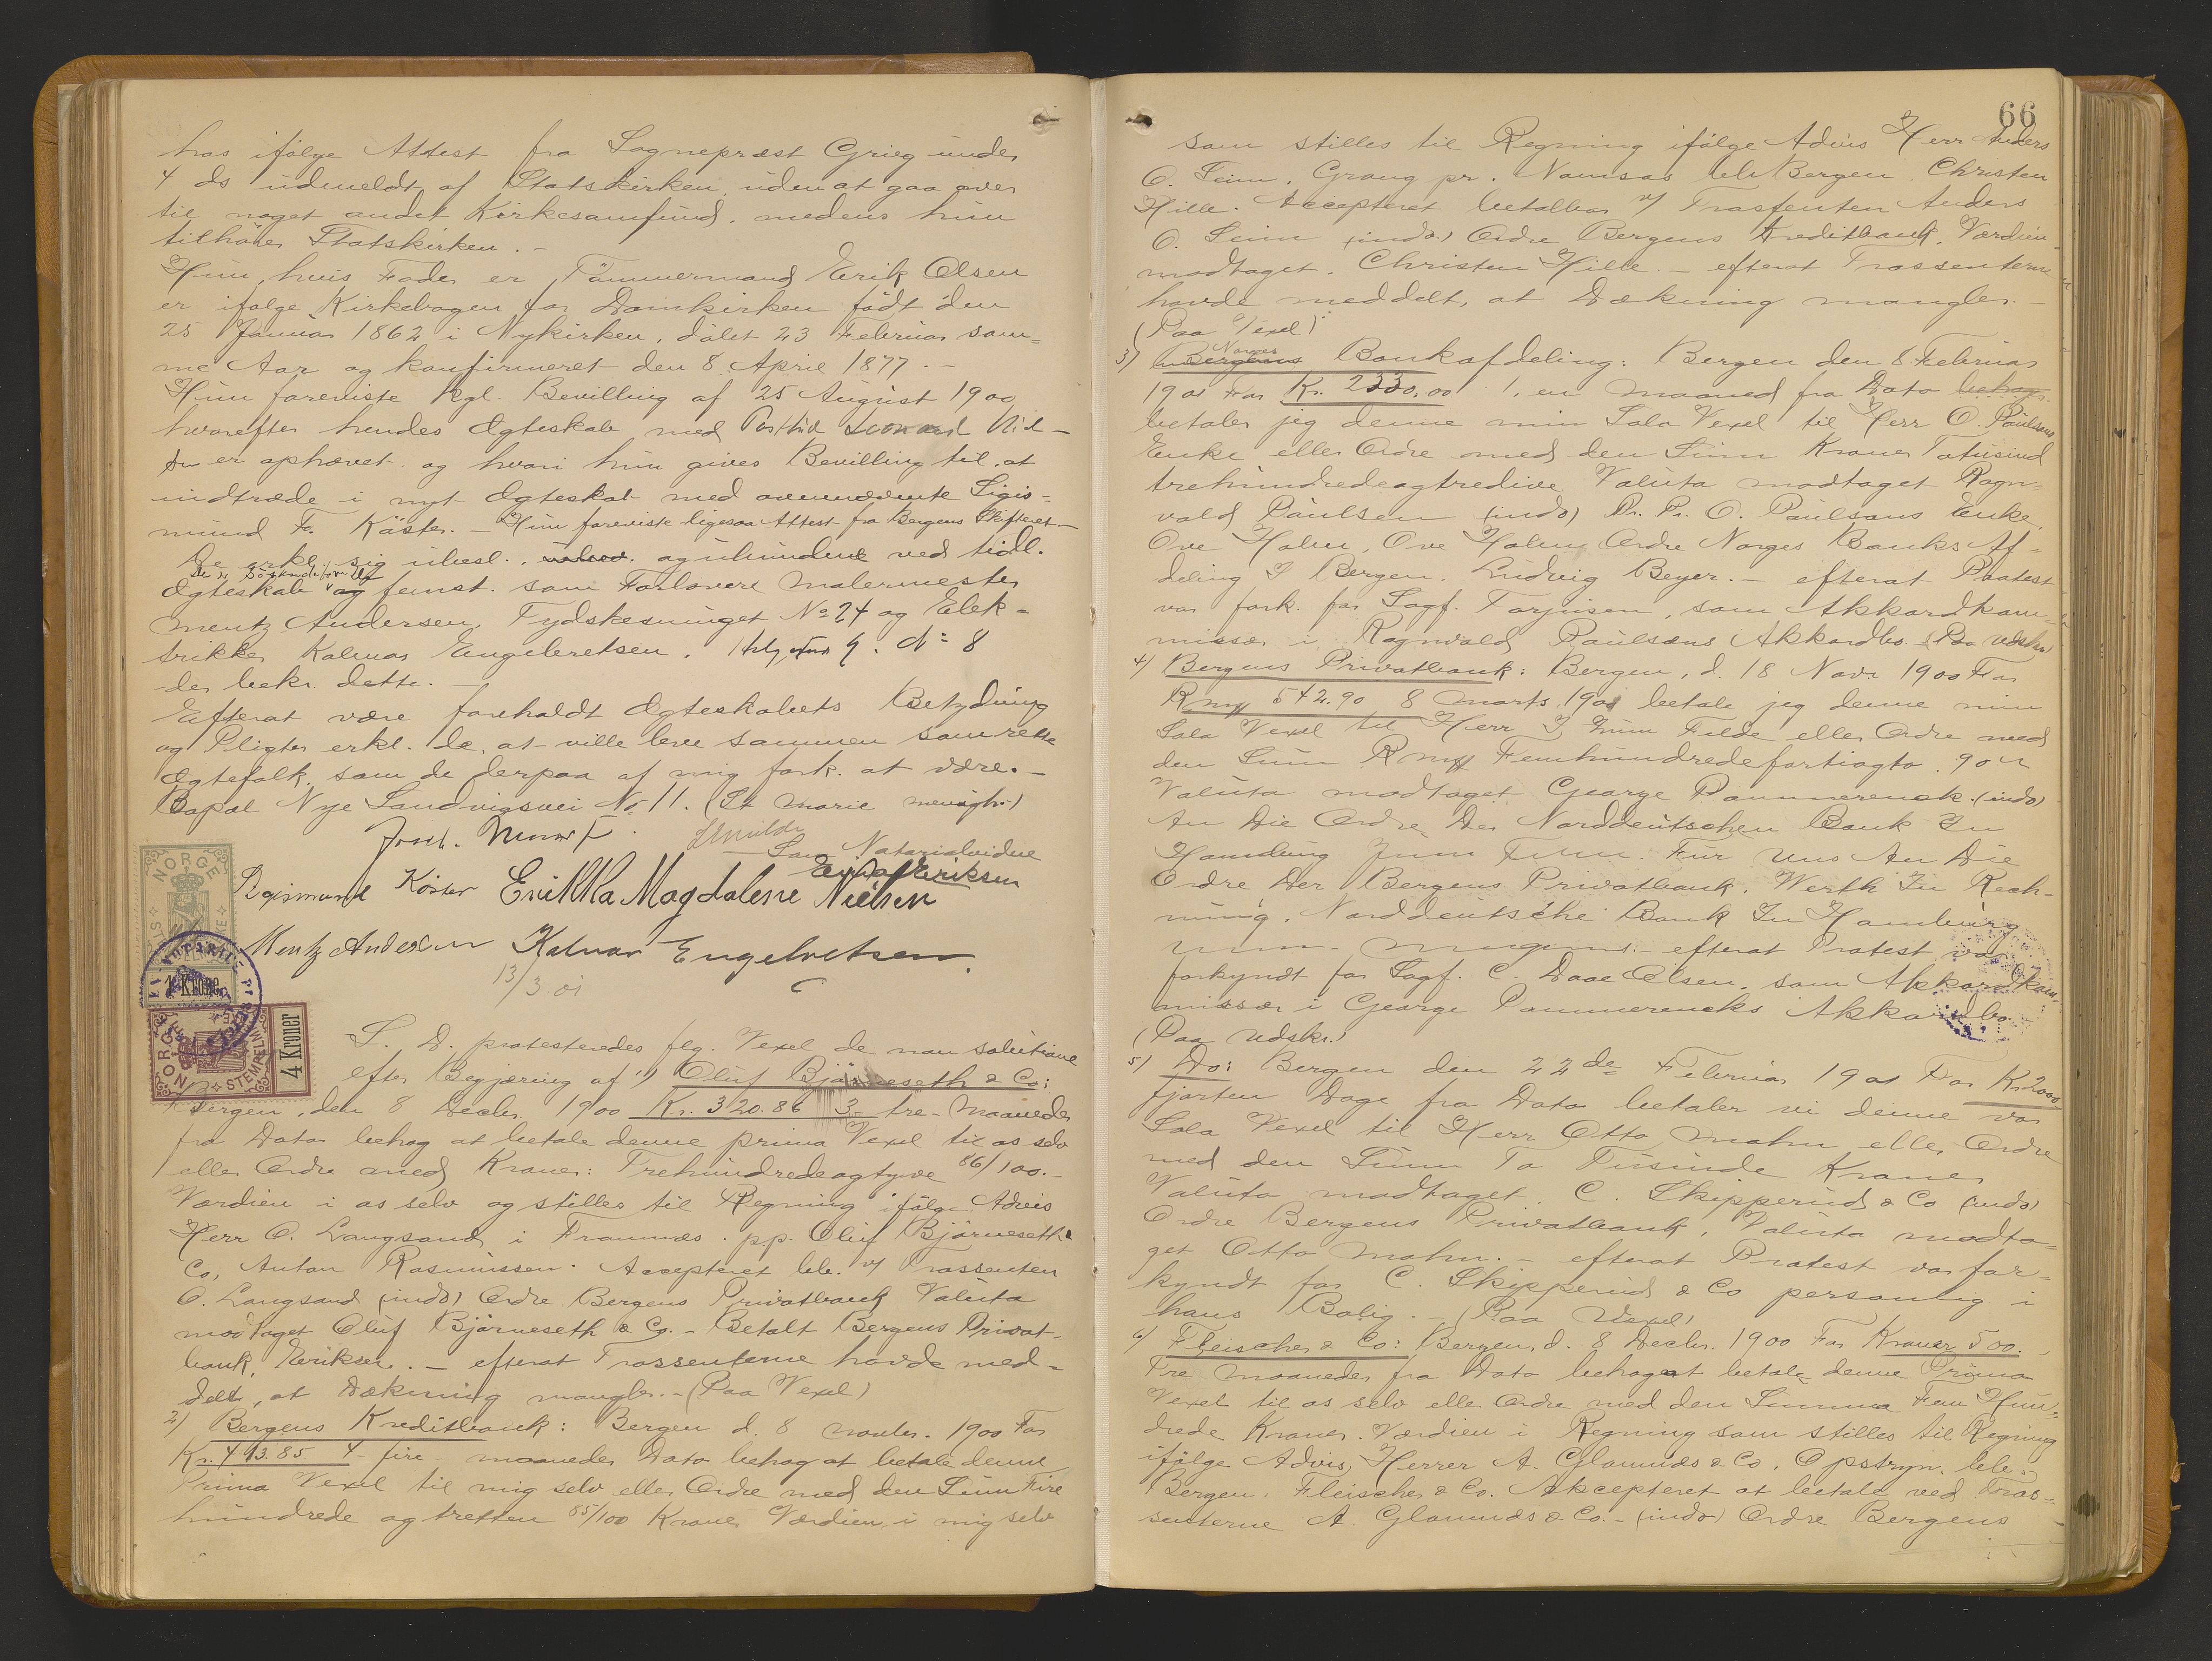 has ifølge Attest fra Sognepræst Grieg under
4 ds udmeldt af Statskirken, uden at gaa over
til noget andet Kirkesamfund, medens hun
tilhører Statskirken. -
Hun, hvis Fader er Tømmermand Erik Olsen
er ifølge Kirkebogen for Domkirken født den
25 Januar 1862 i Nykirken, døbt 23 Februar sam=
me Aar og konfirmeret den 8 April 1877. -
Hun foreviste Kgl. Bevilling af 25 August 1900
hvorefter hendes Ægteskab med
er ophævet og hvori hun gives Bevilling til at
indtræde i nyt Ægteskab med ovennævnte Sigis=
mund F. Köster. - Hun foreviste ligesaa Attest fra Bergens Skifteret. -
De erkl. sig ubesl. og ubundene ved tidl.
Ægteskab og fremst. som Forlovere Malermester
Mentz Andersen, Tydskesmuget No 24 og Elek=
trikker Kalmar Engebretsen. No 8
der bekr. dette. -
Efterat være foreholdt Ægteskabets Betydning
og Pligter erkl. de, at ville leve sammen som rette
Ægtefolk, som de derpaa af mig fork. at være. -
Bopæl Nye Sandvigsvei No 11. (St Marie menigh.)
Som Notarialvidne
Eriksen
NORGE
Sigismund Köster Erikka Magdalene Nielsen
Mentz Andersen Kalmar Engebretsen.
13/3 01
1 Krone
NORGE STEMPELM 4 Kroner
S. D. protesteredes flg. Vexel de non solutione
efter Begjæring af 1) Oluf Bjørneseth & Co:
Bergen, den 8 Decbr. 1900 Kr. 320.86 3- tre - Maaneder
fra Dato behag at betale denne prima Vexel til os selv
eller Ordre med Kroner: Trehundredeogtyve 86/100. -
Værdien i os selv og stilles til Regning ifølge Advis
Herr O. Langsand i Framnæs. pp. Oluf Bjørneseth &
Co, Anton Rasmussen. Accepteret bb. v/ Trassenten
O. Langsand (indo) Ordre Bergens Privatbank Valuta
modtaget Oluf Bjørneseth & Co. - Betalt Bergens Privat-
bank, Eriksen. - efterat Trassenterne havde med=
delt, at Dækning mangler. - (Paa Vexel)
2) Bergens Kreditbank: Bergen d. 8 Novbr. 1900 For
Kr. 413.85 4 - fire - maaneder Dato behag at betale denne
Prima Vexel til mig selv eller Ordre med den Sum Fire
hundrede og tretten 85/100 Kroner Værdien i mig selv
66
som stilles til Regning ifølge Advis Herr Anders
O. Seim, Grong pr. Namsos bb Bergen Christen
Hille. Accepteret betalbar v/ Trassenten Anders
O. Seim (indo.) Ordre Bergens Kreditbank, Værdien
modtaget. Christen Hille. - efterat Trassenterne
havde meddelt, at Dækning mangler. -
(Paa Vexel)
3) Bergens Norges Bankafdeling: Bergen den 8 Februar
1901 For Kr. 2330,00 1, en maaned fra Dato behag
betaler jeg denne min Sola Vexel til Herr O. Paulsens
Enke eller Ordre med den Sum Kroner Totusind
trehundredeogtredive Valuta modtaget Ragn=
vald Paulsen (indo) Pr. Pr. O. Paulsens Enke,
Ove Holm, Ove Holm Ordre Norges Banks Af=
deling I Bergen. Ludvig Beyer. - efterat Protest
var fork. for Sagf. Torjusen, som Akkordkom=
missær i Ragnvald Paulsens Akkordbo. (Paa Udskr.)
4) Bergens Privatbank: Bergen, d. 18 Novr 1900 For
Rmk 542.90 8 Marts, 1901 betale jeg denne min
Sola Vexel til Herr J. Grün Filde eller Ordre med
den Sum Rmk Femhundredefortiogto. 90 
Valuta modtaget George Pommerenck. (indo)
An Die Ordre Der Norddeutschen Bank In
Hamburg Für Uns An Die
Ordre Der Bergens Privatbank. Werth In Rech-
nung. Norddeutsche Bank In Hamburg
efterat Protest var
forkyndt for Sagf. C. Daae Olsen, som Akkordkom=
missær i George Pommerencks Akkordbo. -
(Paa Udskr.)
5) Do: Bergen den 22de Februar 1901 For Kr 2000
fjorten Dage fra Dato betaler vi denne vor
Sola Vexel til Herr Otto Mohn eller Ordre
med den Sum To Tusinde Kroner
Valuta modtaget. C. Skipperud & Co (indo)
Ordre Bergens Privatbank, Valuta modta=
get Otto Mohn. - efterat Protest var for=
kyndt for C. Skipperud & Co personlig i
hans Bolig. - (Paa Vexel)
6) Fleischer & Co: Bergen, d. 8 Decbr. 1900 For Kroner 500. -
Tre Maaneder fra Dato behag at betale denne Prima
Vexel til os selv eller Ordre med den Summa Fem Hun=
drede Kroner. Værdien i Regning som stilles til Regning
ifølge Advis, Herrer A. Glomnæs & Co. Opstryn, bb.
Bergen. Fleischer & Co. Akcepteret at betale ved Tras=
senterne A. Glomnæs & Co. - (indo) Ordre Bergens